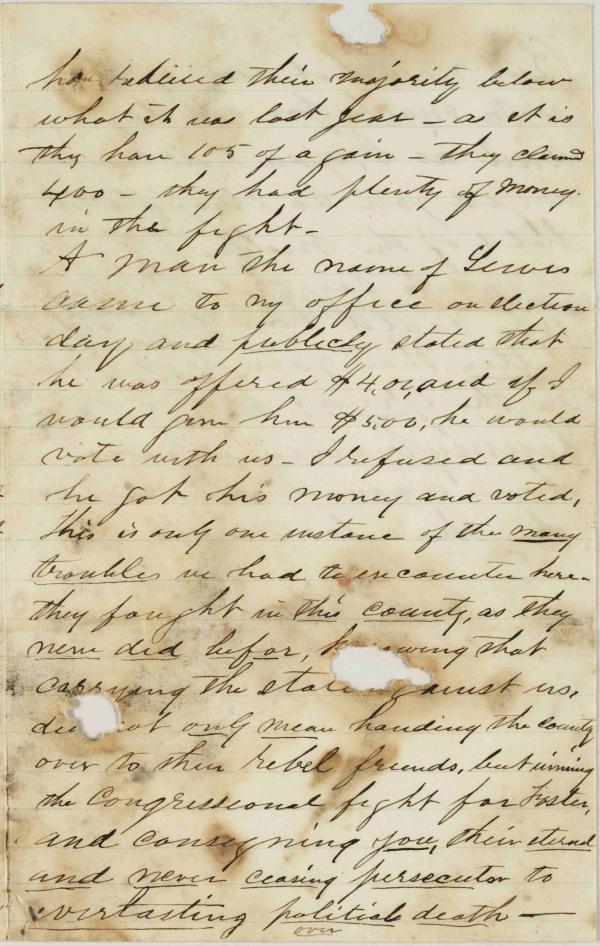 have reduced their majority below
what it was last year – as it is
they have 105 of a gain – they claimed
400 – they had plenty of money
in the fight –
A man the name of Lewis
came to my office on election
day and publicly stated that
he was offered $4.00, and if I
would give him $5.00, he would
vote with us – I refused and
he got his money and voted,
this is only one instance of the many
troubles we had to encounter here –
they fought in this county, as they
never did befor, knowing that
carrying the state against us,
did not only mean handing the county
over to their rebel friends, but winning
the Congressional fight for Foster,
and consigning you, their eternal
and never ceasing persecutor to
everlasting political death —
over